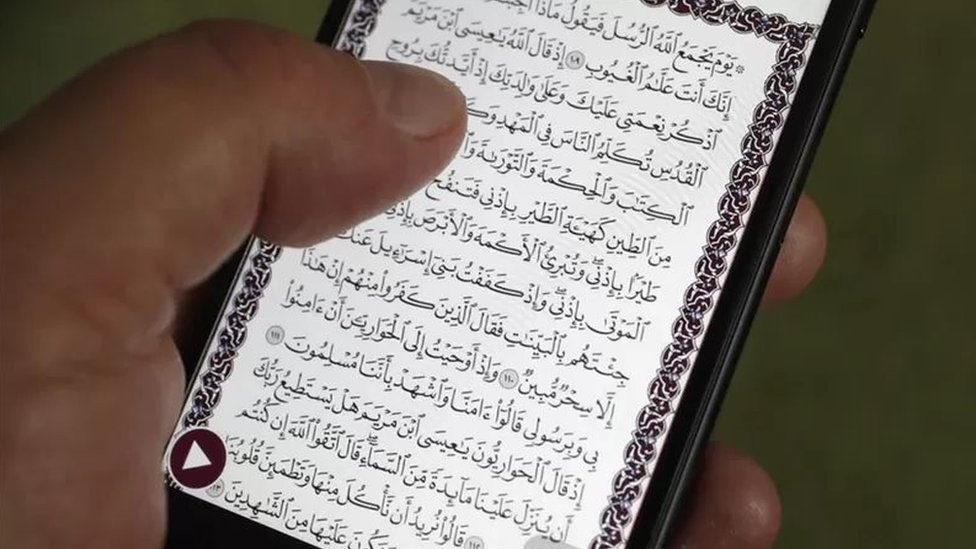 ۞ يَوْمَ يَجْمَعُ ٱللَّهُ ٱلرُّسُلَ فَيَقُولُ مَاذَآ
إِنَّكَ أَنتَ عَلَّٰمُ ٱلْغُيُوبِ ١٠٩ إِذْ قَالَ ٱللَّهُ يَٰعِيسَى ٱبْنَ مَرْيَمَ
ٱذْكُرْ نِعْمَتِي عَلَيْكَ وَعَلَىٰ وَٰلِدَتِكَ إِذْ أَيَّدتُّكَ بِرُوحِ
ٱلْقُدُسِ تُكَلِّمُ ٱلنَّاسَ فِي ٱلْمَهْدِ
ٱلْكِتَٰبَ وَٱلْحِكْمَةَ وَٱلتَّوْرَىٰةَ
مِنَ ٱلطِّينِ كَهَيْـَٔةِ ٱلطَّيْرِ بِإِذْنِي فَتَنفُخُ
طَيْرًۢا بِإِذْنِي وَتُبْرِئُ ٱلْأَكْمَهَ وَٱلْأَبْرَصَ بِإِذْنِي
ٱلْمَوْتَىٰ بِإِذْنِي وَإِذْ كَفَفْتُ بَنِيٓ إِسْرَٰٓءِيلَ عَنكَ
جِئْتَهُم بِٱلْبَيِّنَٰتِ فَقَالَ ٱلَّذِينَ كَفَرُوا۟ مِنْهُمْ إِنْ هَٰذَآ
إِلَّا سِحْرٌ مُّبِينٌ ١١٠ وَإِذْ أَوْحَيْتُ إِلَى ٱلْحَوَارِيِّـۧنَ أَنْ ءَامِنُوا۟
بِي وَبِرَسُولِي قَالُوٓا۟ ءَامَنَّا وَٱشْهَدْ بِأَنَّنَا مُسْلِمُونَ ١١١
إِذْ قَالَ ٱلْحَوَارِيُّونَ يَٰعِيسَى ٱبْنَ مَرْيَمَ هَلْ يَسْتَطِيعُ رَبُّكَ
أَن يُنَزِّلَ عَلَيْنَا مَآئِدَةً مِّنَ ٱلسَّمَآءِ قَالَ ٱتَّقُوا۟ ٱللَّهَ إِن كُنتُم
١١٢ قَالُوا۟ نُرِيدُ أَن نَّأْكُلَ مِنْهَا وَتَطْمَئِنَّ قُلُوبُنَا
وَنَكُونَ عَلَيْهَا مِنَ ٱلشَّٰهِدِينَ ١١٣